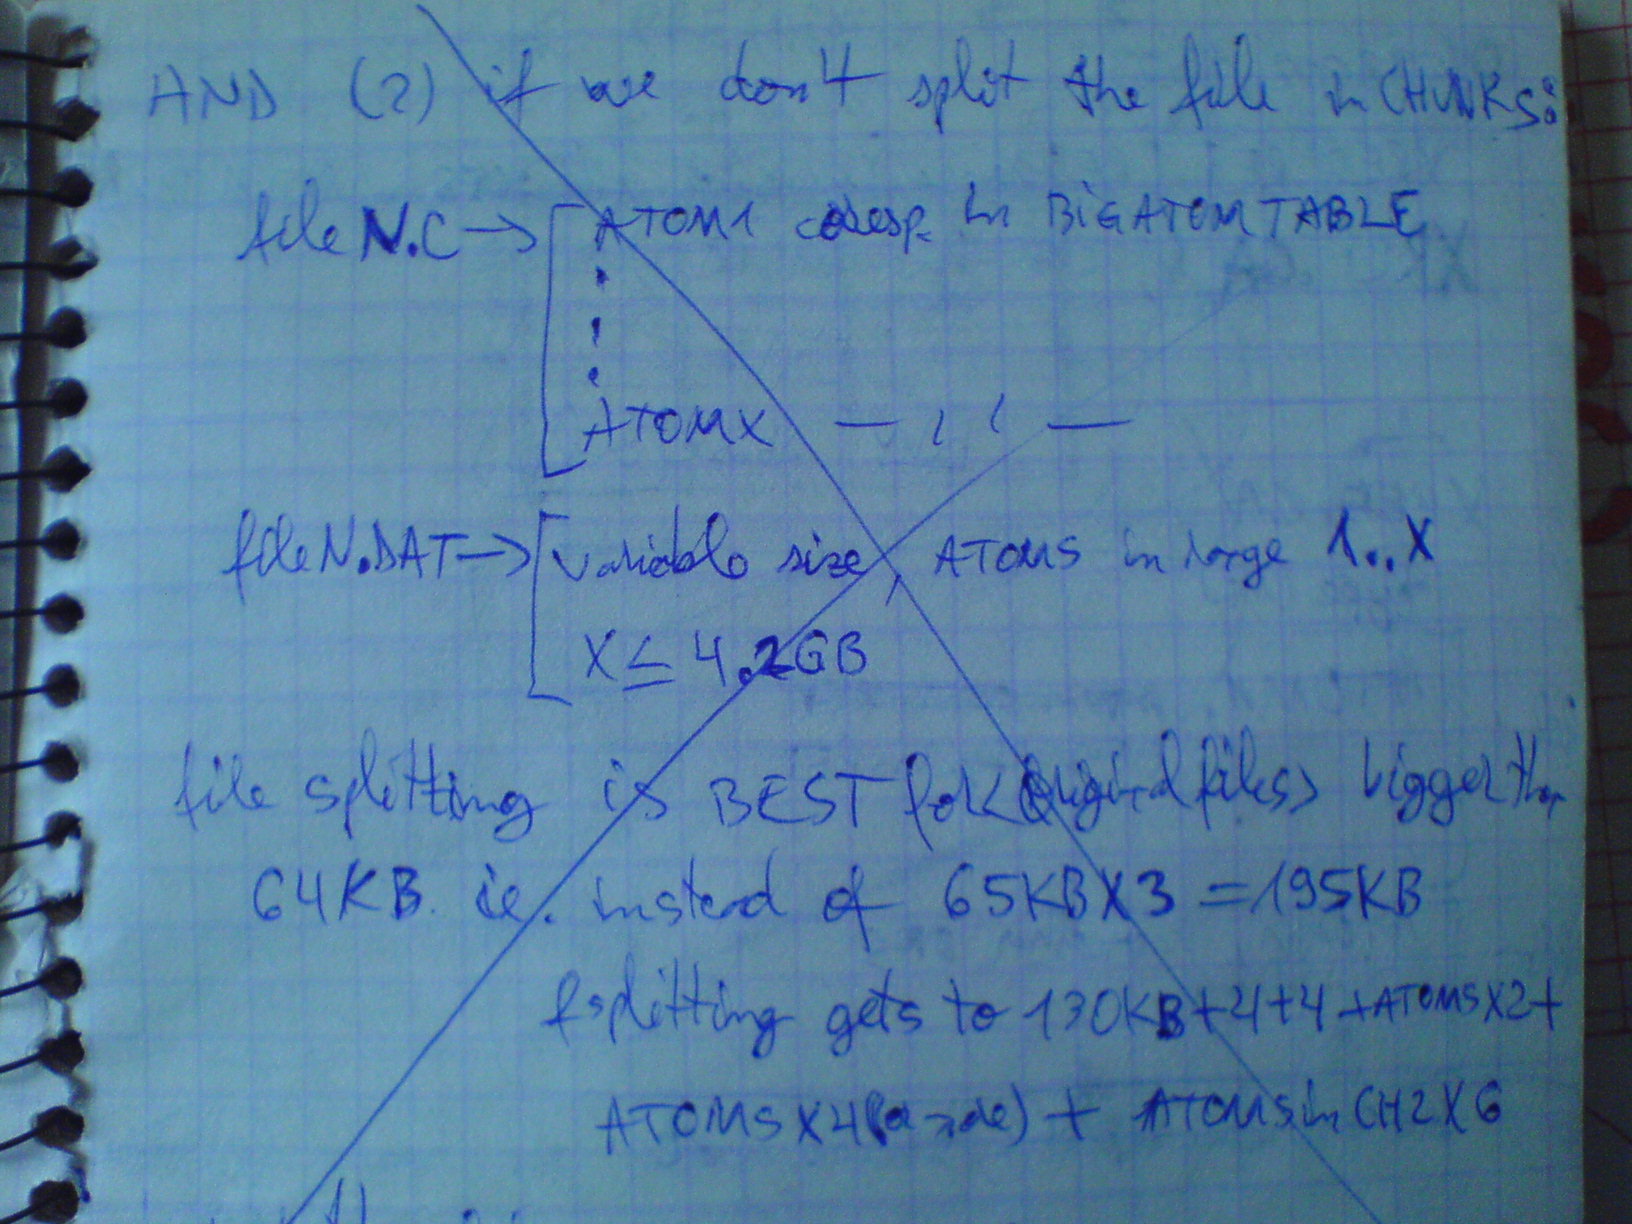 AND (2) if we don't split the file in CHUNKS:
fileN.C → [ ATOM1 coresp. in BIGATOMTABLE
ATOMX — ,, —
fileN.DAT → [ variable size, ATOMS in range 1..X
X ≤ 4.2GB
file splitting is BEST for (original files) bigger than
64KB. ie. instead of 65KB X 3 = 195KB
fsplitting gets to 130KB+4+4+ATOMSX2+
ATOMSX4 + ATOMS in CH2X6